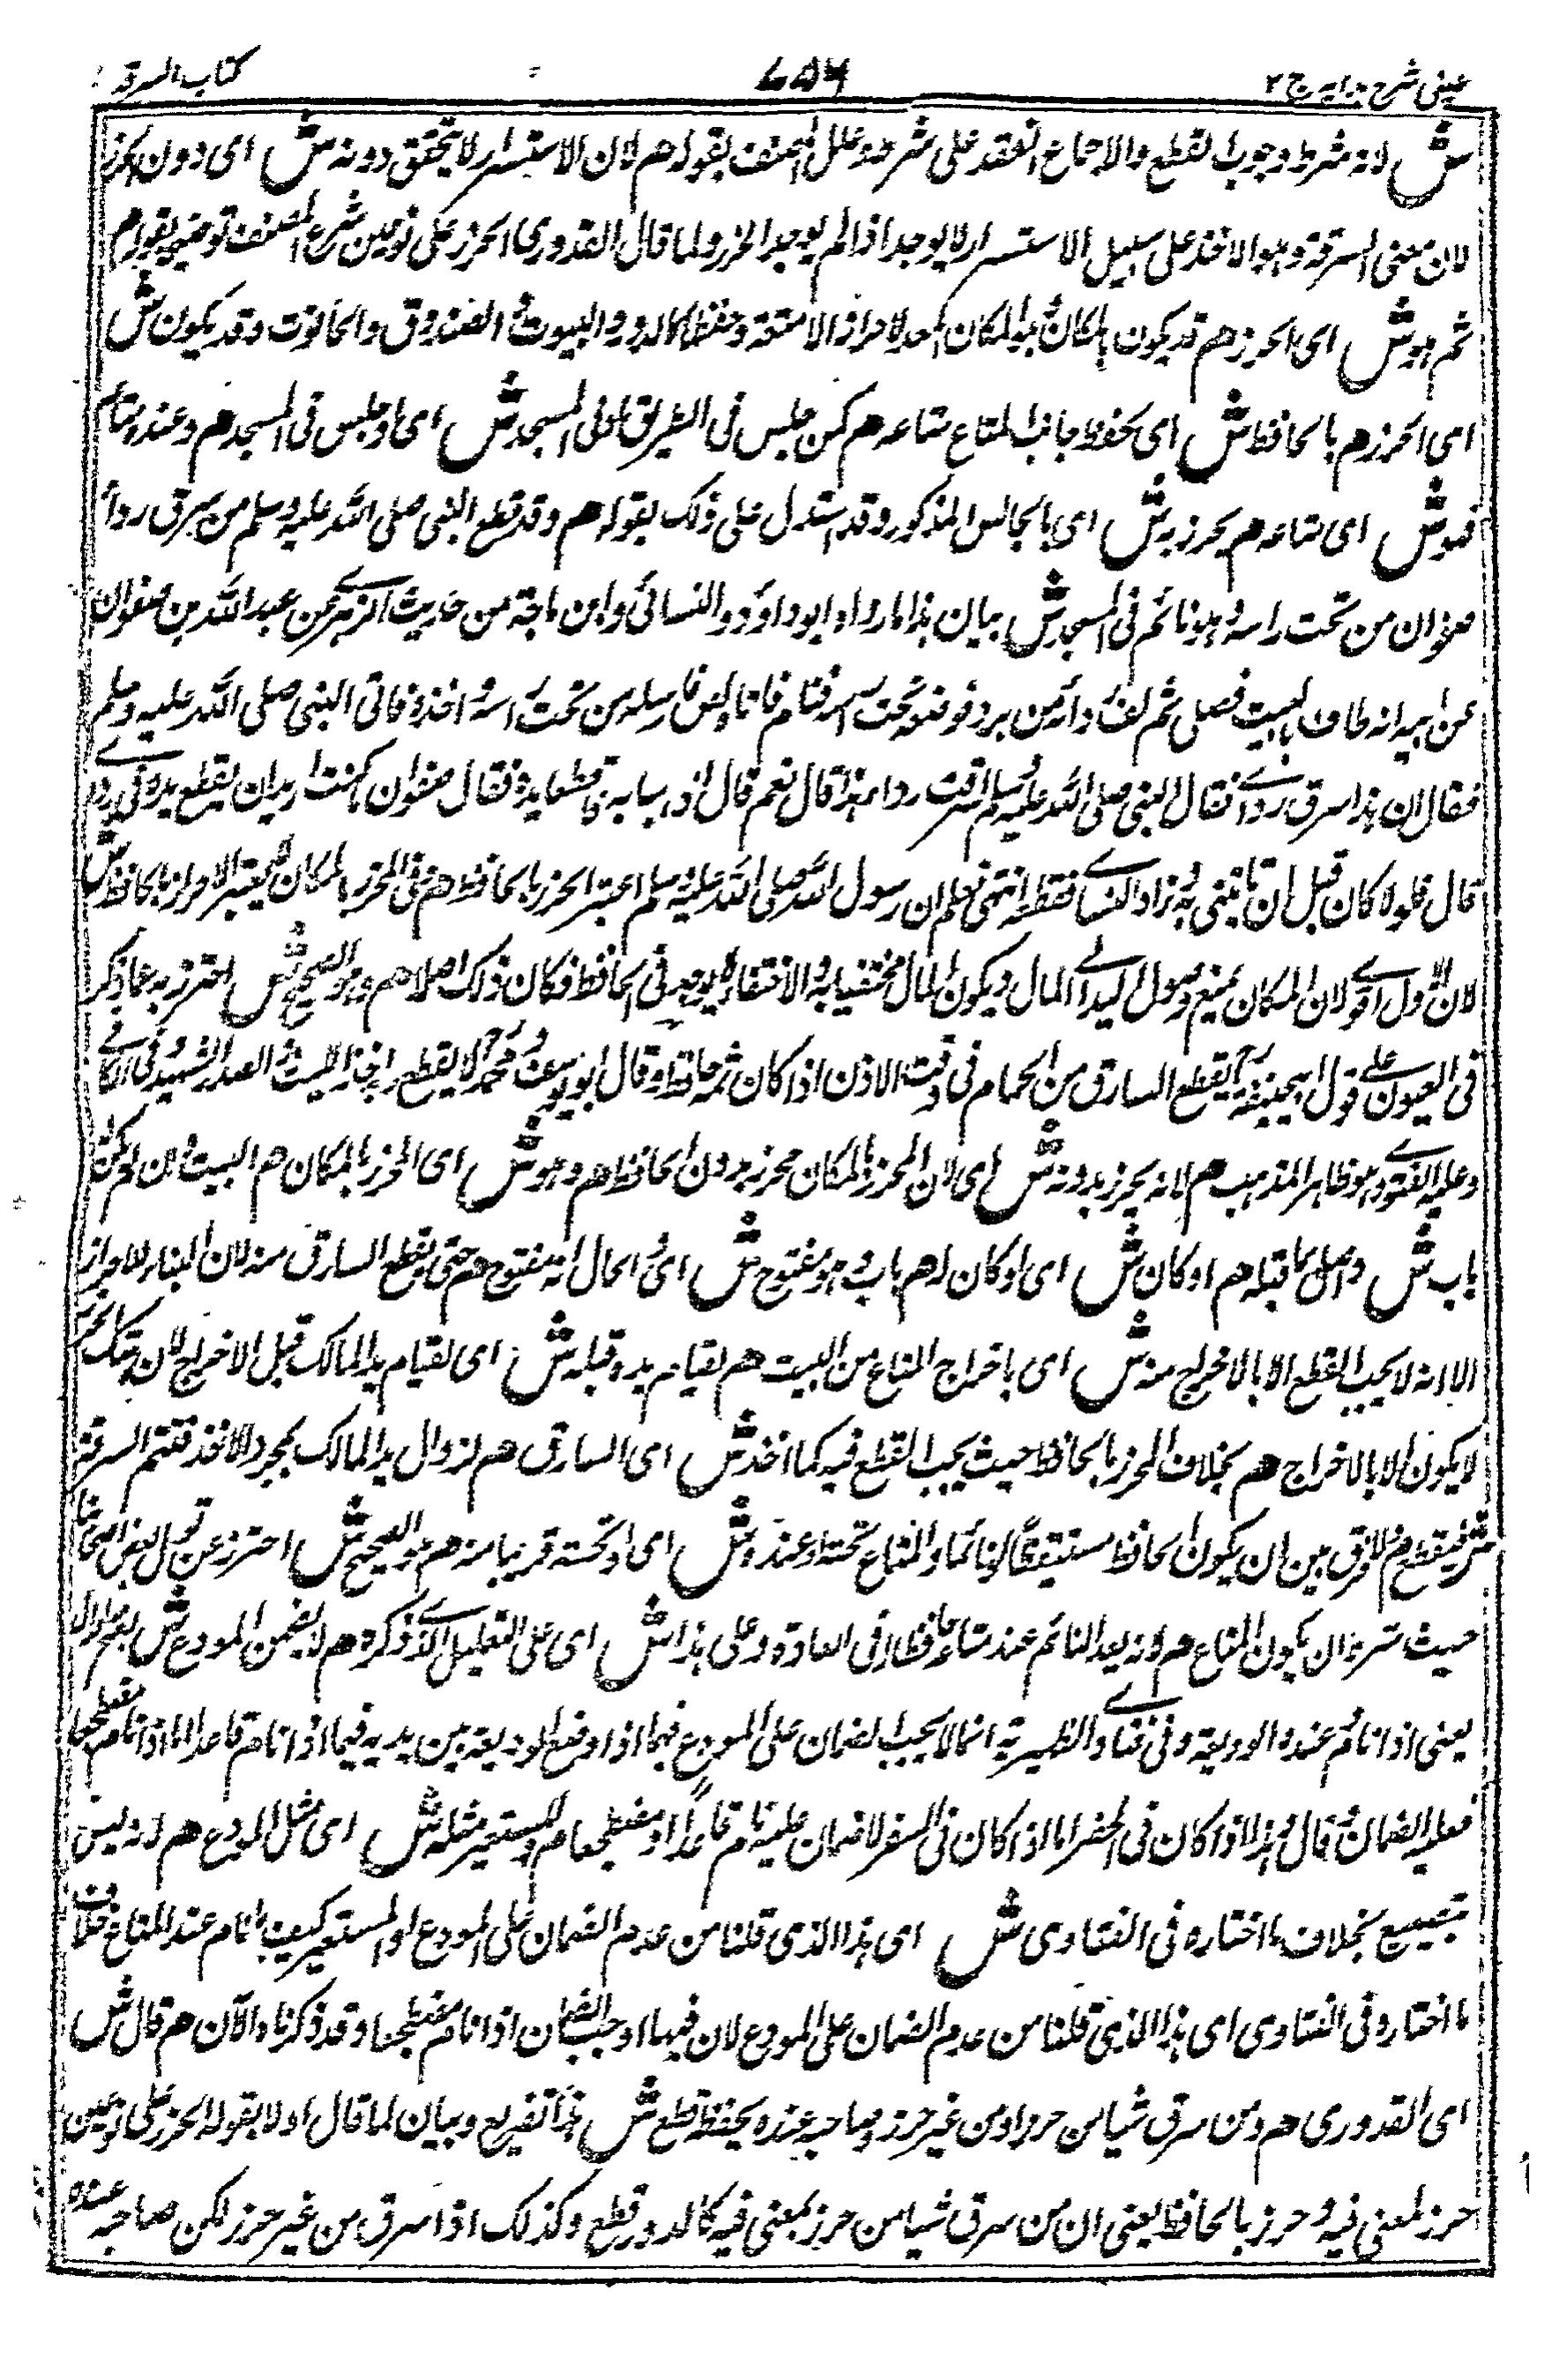 عینی شرح ہدایہ ج ۲
۷۵۶
کتاب السرقہ
ش لانہ شرط وجوب القطع والاجماع انعقد علی شرطہ وعلل المصنف بقولہ هم لان الاستسرار لا یتحقق دونہ ش ای دون الحرز
لان معنی السرقۃ وہو الاخذ علی سبیل الاستسرار لا یوجد اذا لم یوجد الحرز ولما قال القدوری الحرز علی نوعین شرع المصنف توضیحہ بقولہ م
ثم ہو ش ای الحرز هم قد یکون بالمکان وہو المکان المعد لاحراز الامتعۃ وحفظہا کالدور والبیوت والصندوق والحانوت وقد یکون ش
ای الحرز هم بالحافظ ش ای بحفظ جانب المتاع متاعہ هم کمن جلس فی الطریق او فی المسجد ش ای او جلس فی المسجد هم وعندہ متاعہ
فہو ش ای متاعہ هم محرز بہ ش ای بالجالس المذکور وقد استدل علی ذلک بقولہ هم وقد قطع النبی صلی اللہ علیہ وسلم من سرق رداء
صفوان من تحت راسہ وہو نائم فی المسجد ش بیان ہذا ما رواہ ابو داؤد والنسائی وابن ماجۃ من حدیث الزہری عن عبد اللہ بن صفوان
عن ابیہ انہ طاف بالبیت فصلی ثم لف رداءہ من برد فوضعہ تحت راسہ فنام فاتاہ لص فاستلہ من تحت راسہ فاخذہ فاتی النبی صلی اللہ علیہ وسلم
فقال ان ہذا سرق ردائی فقال النبی صلی اللہ علیہ وسلم اسرقت رداء ہذا قال نعم قال اذہبا بہ فاقطعا یدہ فقال صفوان ما کنت ارید ان یقطع یدہ فی ردائی
قال فلولا کان قبل ان تاتینی بہ زاد النسائی فقطعہ انتہی فعلم ان رسول اللہ صلی اللہ علیہ وسلم اعتبر الحرز بالحافظ هم وفی الحرز بالمکان لا یعتبر الاحراز بالحافظ ش
لان الاول اقوی لان المکان یمنع وصول الید الی المال ویکون المال مختفیا بہ والاختفاء لا یوجد فی الحافظ فکان ذلک اصلا هم وہو الصحیح ش احترز بہ عما ذکر
فی العیون علی قول ابی حنیفۃ یقطع السارق من الحمام فی وقت الاذن اذا کان ثمہ حافظ وقال ابو یوسف ومحمد لا یقطع وبہ اخذ ابو اللیث والصدر الشہید وفی الکافی
وعلیہ الفتوی وہو ظاہر المذہب هم لانہ محرز بدونہ ش ای لان المحرز بالمکان محرز بدون الحافظ هم وہو ش ای الحرز بالمکان هم البیت وان لم یکن لہ
باب ش واصل بما قبلہ هم او کان ش ای او کان لہ هم باب وہو مفتوح ش ای والحال انہ مفتوح هم حتی یقطع السارق منہ لان البناء للاحراز
الا انہ لا یجب القطع الا بالاخراج منہ ش ای باخراج المتاع من البیت هم لقیام یدہ قبلہ ش ای لقیام ید المالک قبل الاخراج لان ہتک الحرز
لا یکون الا بالاخراج هم بخلاف المحرز بالحافظ حیث یجب القطع فیہ کما اخذ ش ای السارق هم لزوال ید المالک بمجرد الاخذ فتتم السرقۃ
ش فیقطع هم ولا فرق بین ان یکون الحافظ مستیقظا او نائما والمتاع تحتہ او عندہ ش ای او تحتہ قریبا منہ هم ہو الصحیح ش احترز عن قول بعض اصحابنا
حیث شرط ان یکون المتاع هم لانہ یعد النائم عند متاعہ حافظا لہ فی العادۃ وعلی ہذا ش ای علی التعلیل الذی ذکرہ هم لا یضمن المودع ش بفتح الدال
یعنی اذا نام وعندہ الودیعۃ وفی فتاوی الظہیریۃ انما لا یجب الضمان علی المودع فیما اذا وضع الودیعۃ بین یدیہ فیما اذا نام قاعدا اما اذا نام مضطجعا
فعلیہ الضمان وقال وہذا اذا کان فی الحضر اما اذا کان فی السفر لا ضمان علیہ نام قاعدا او مضطجعا هم والمستعیر مثلہ ش ای مثل المودع هم لانہ لیس
بتضییع بخلاف ما اختارہ فی الفتاوی ش ای ہذا الذی قلنا من عدم الضمان علی المودع او المستعیر کیف ما نام عند المتاع خلاف
ما اختارہ فی الفتاوی ای ہذا الذی قلنا من عدم الضمان علی المودع لان فیہا اوجب الضمان اذا نام مضطجعا وقد ذکرناہ الآن هم قال ش
ای القدوری هم ومن سرق شیئا من حرز او من غیر حرز وصاحبہ عندہ یحفظہ قطع ش ہذا تفریع وبیان لما قال اولا بقولہ الحرز علی نوعین
حرز لمعنی فیہ وحرز بالحافظ یعنی ان من سرق شیئا من حرز بمعنی فیہ کالدور قطع وکذلک اذا سرق من غیر حرز لکن صاحبہ عندہ